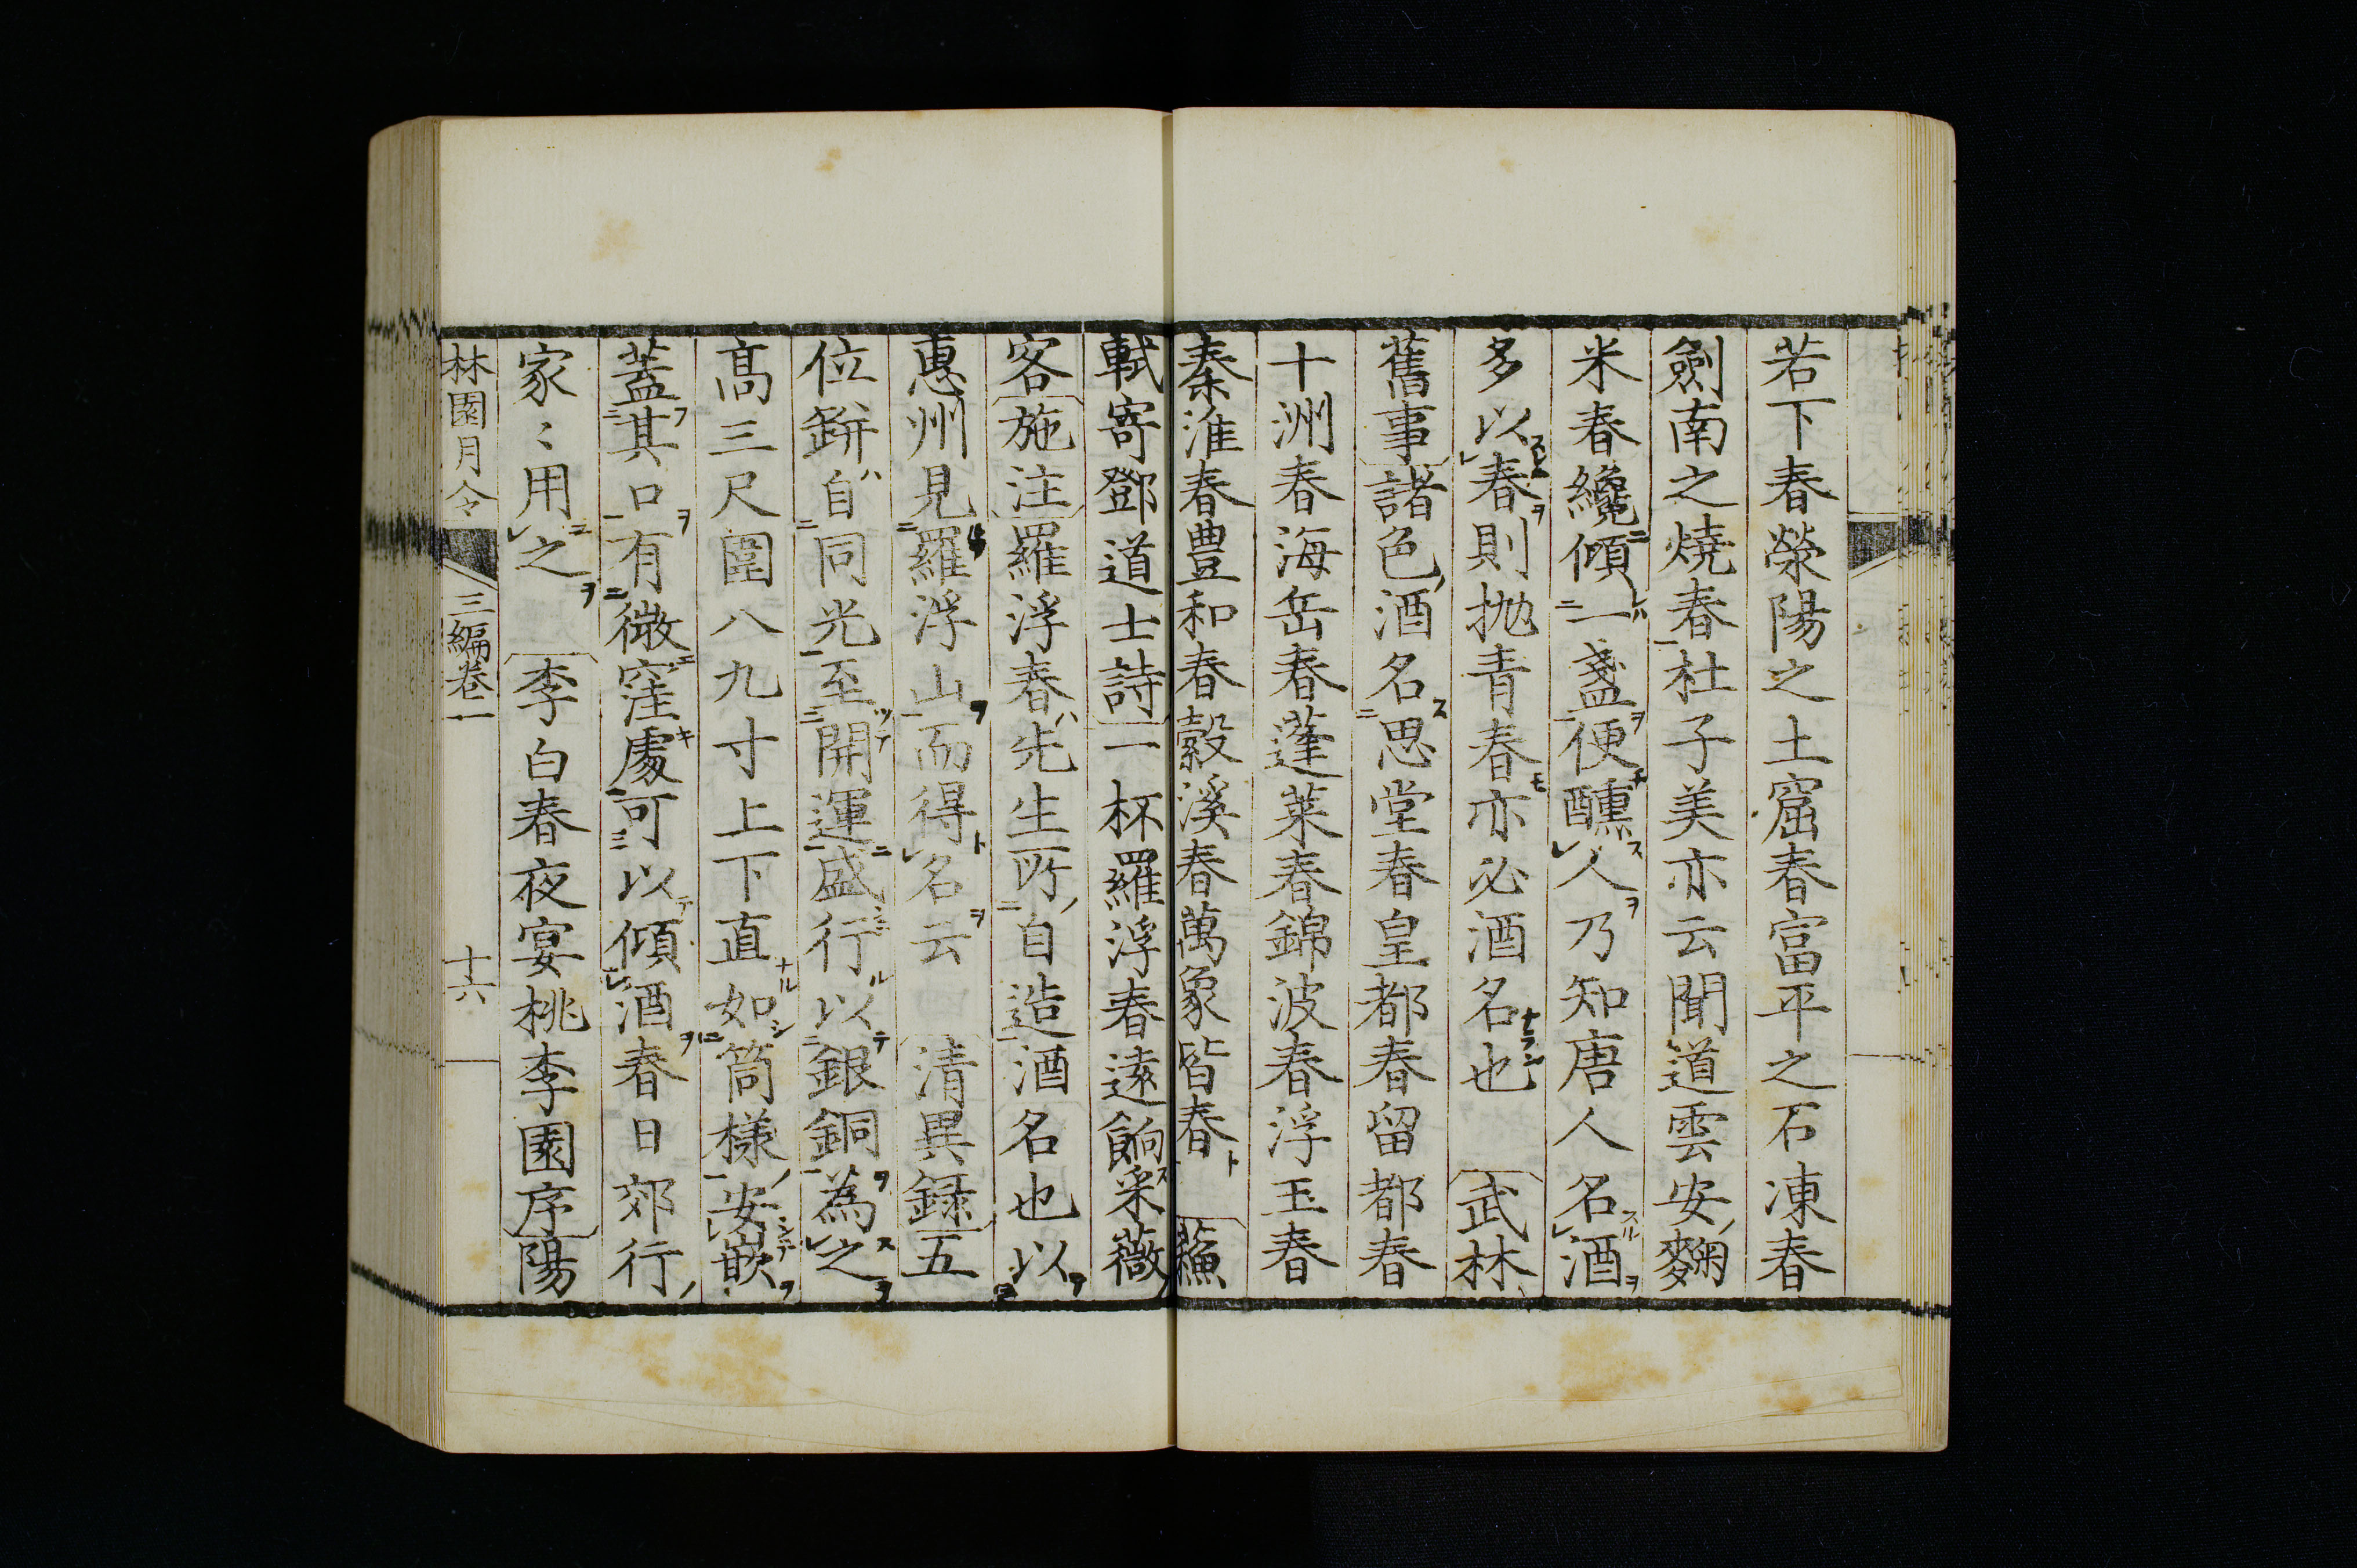 若下春滎陽之土窟春富平之石凍春
劍南之燒春杜子美亦云聞道雲安麴
米春纔傾一盞便醺人乃知唐人名酒
多以春則抛青春亦必酒名也 武林
舊事諸色酒名思堂春皇都春留都春
十洲春海岳春蓬萊春錦波春浮玉春
秦淮春豊和春穀溪春萬象皆春 蘓
軾寄鄧道士詩一杯羅浮春遠餉采薇
客施注羅浮春先生所自造酒名也以
惠州見羅浮山而得名云 清異録五
位缾自同光至開運盛行以銀銅為之
髙三尺圍八九寸上下直如筒様安嵌
蓋其口有微窪處可以傾酒春日郊行
家〻用之 李白春夜宴桃李園序陽
林園月令 三編卷一 十六